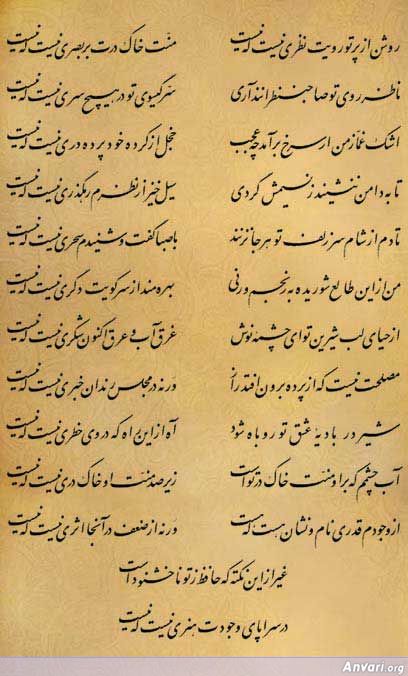 روشن از پرتو رویت نظری نیست که نیست منت خاک درت بر بصری نیست که نیست
ناظر روی تو صاحب نظرانند آری سر گیسوی تو در هیچ سری نیست که نیست
اشک غماز من ار سرخ برآمد چه عجب خجل از کرده خود پرده دری نیست که نیست
تا به دامن ننشیند ز نسیمش گردی سیل خیز از نظرم رهگذری نیست که نیست
تا دم از شام سر زلف تو هر جا نزنند با صبا گفت و شنیدم سحری نیست که نیست
من از این طالع شوریده به رنجم ور نی بهره مند از سر کویت دگری نیست که نیست
از حیای لب شیرین تو ای چشمه نوش غرق آب و عرق اکنون شکری نیست که نیست
مصلحت نیست که از پرده برون افتد راز ور نه در مجلس رندان خبری نیست که نیست
شیر در بادیه عشق تو روباه شود آه از این راه که در وی خطری نیست که نیست
آب چشمم که بر او منت خاک در توست زیر صد منت او خاک دری نیست که نیست
از وجودم قدری نام و نشان هست که هست ور نه از ضعف در آنجا اثری نیست که نیست
غیر از این نکته که حافظ ز تو ناخشنود است
در سراپای وجودت هنری نیست که نیست
Anvari.org